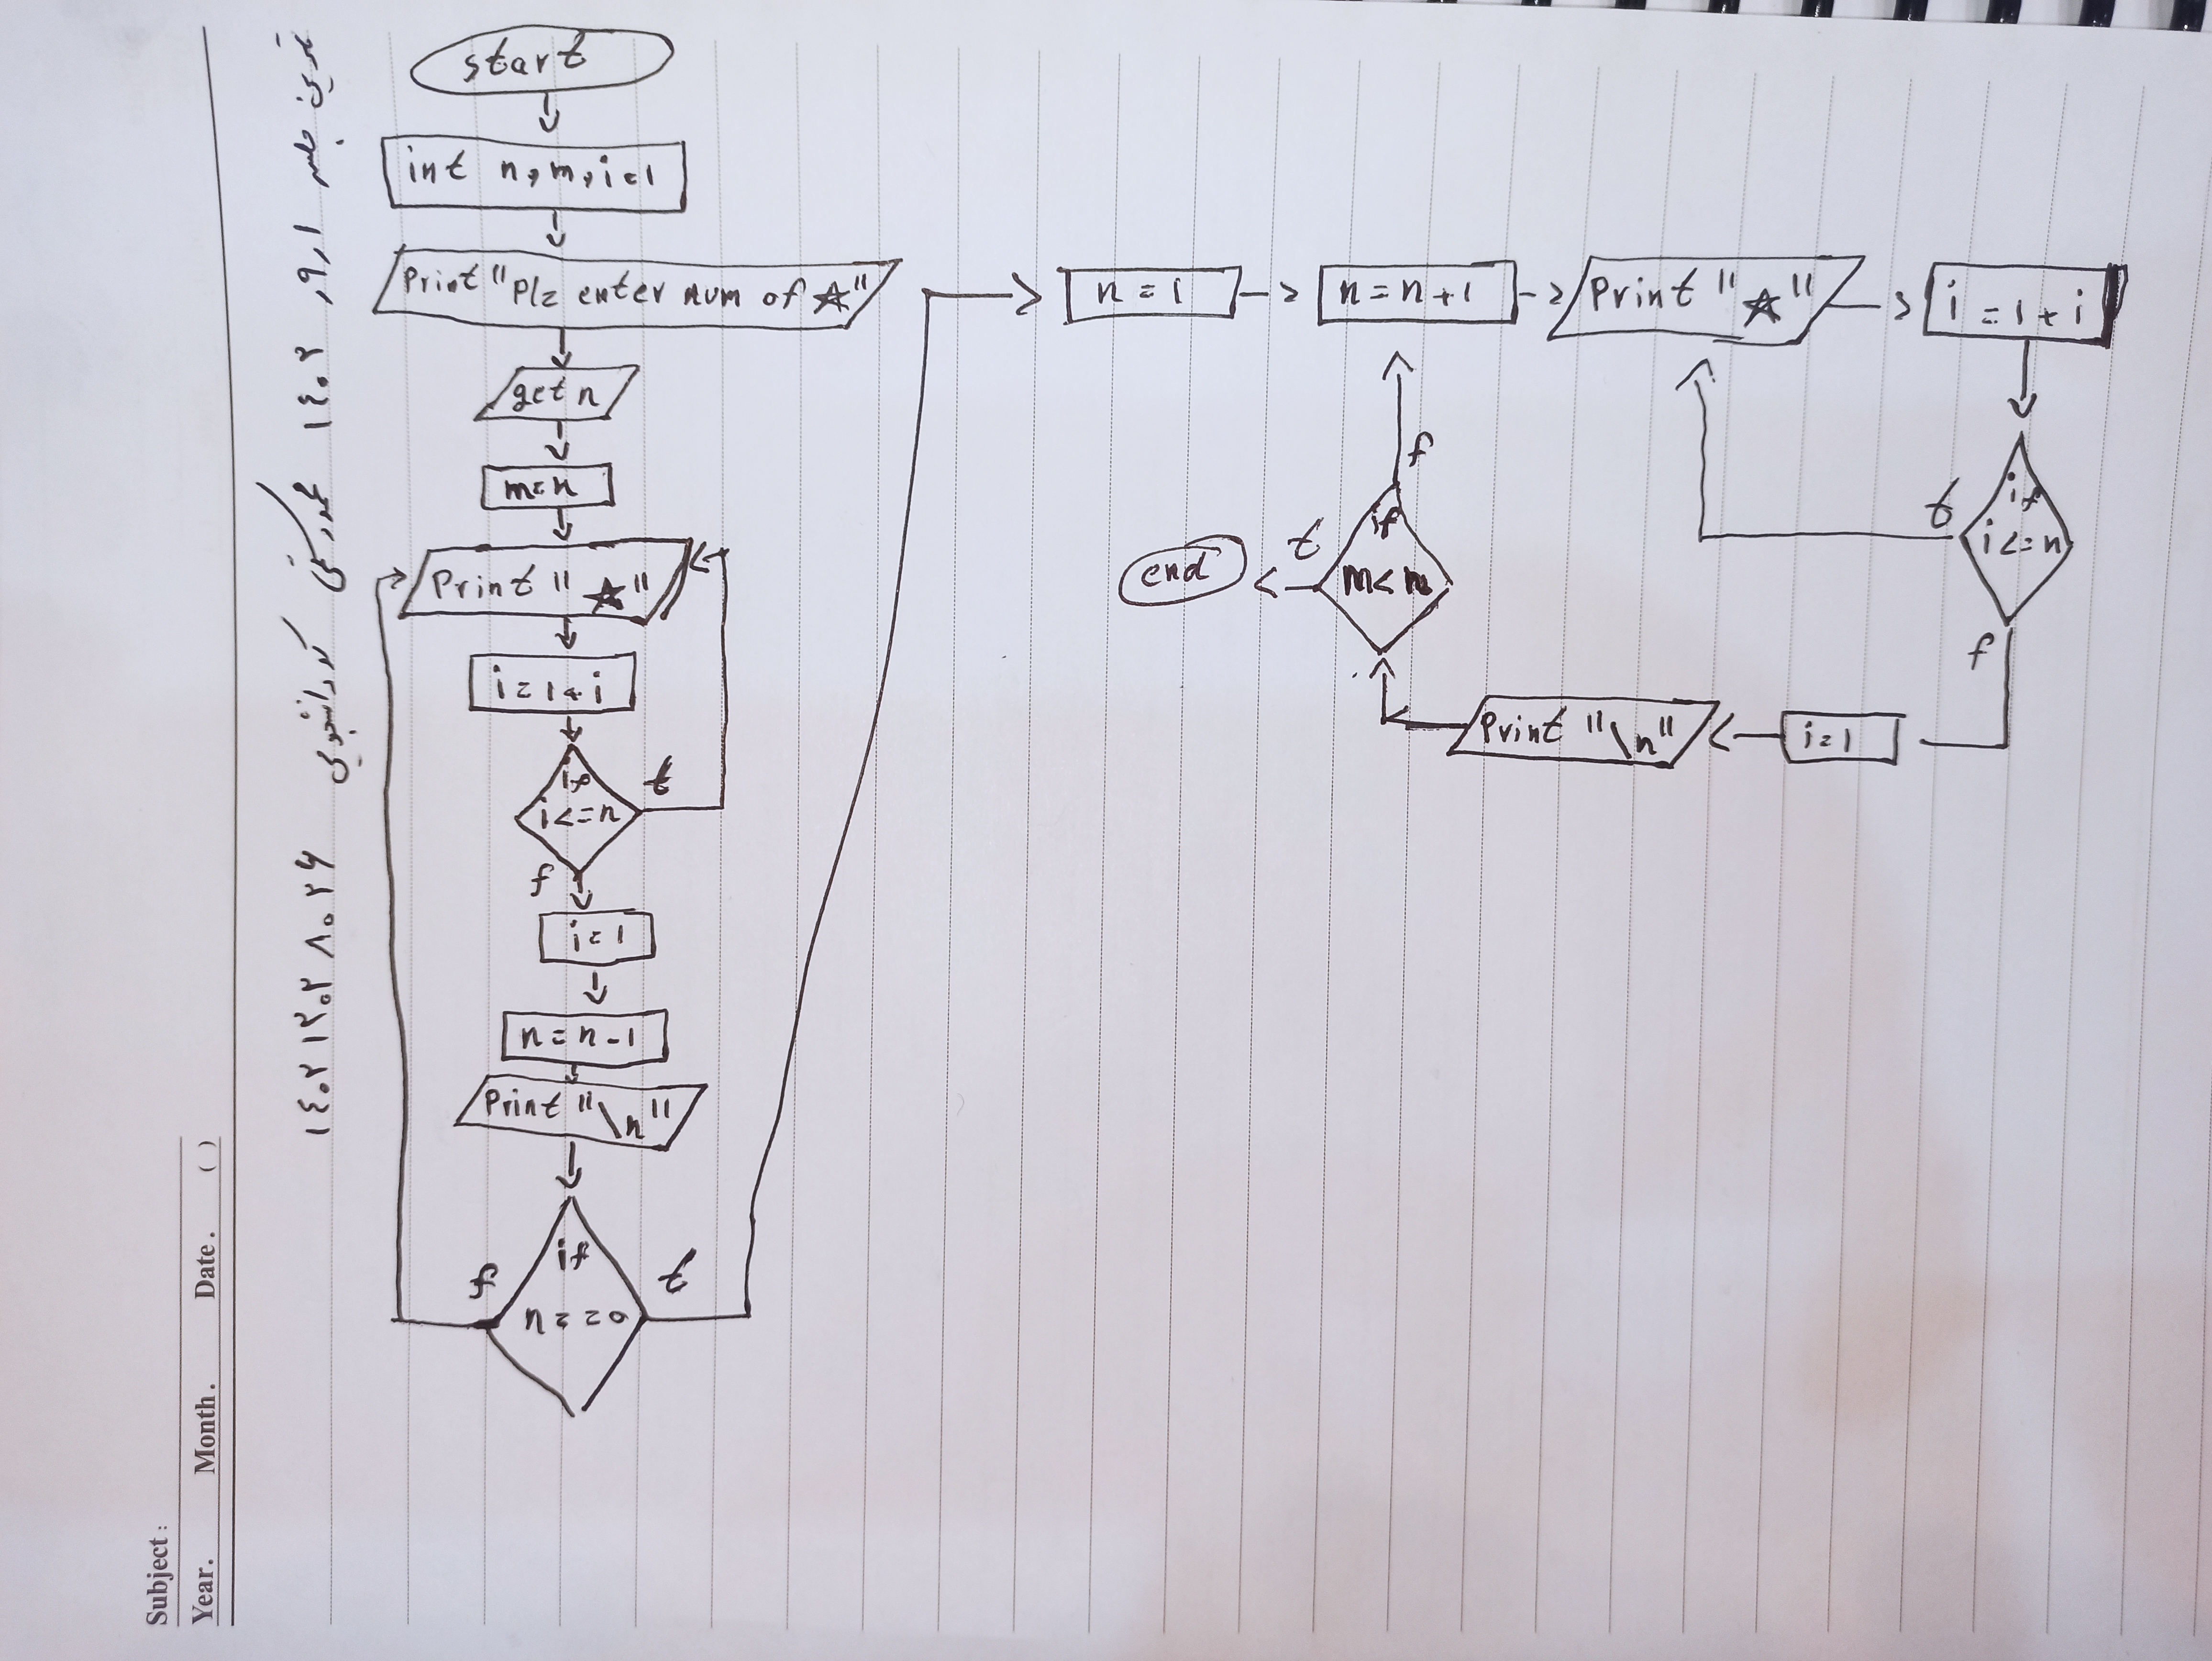 Subject :
Year. Month. Date. ( )
تمرین جلسه ۱ ر ۹ ر ۱۴۰۳ محمد رستمی کد دانشجویی ۱۴۰۳۱۳۰۳۸۰۲۶
start
int n,m,i=1
Print "plz enter num of ☆"
get n
m=n
Print "☆"
i=1+i
if
i<=n
t
f
i=1
n=n-1
Print "\n"
if
n==0
f
t
n=1
n=n+1
Print "☆"
i=1+i
if
i<=n
t
f
i=1
Print "\n"
if
m<n
f
t
end